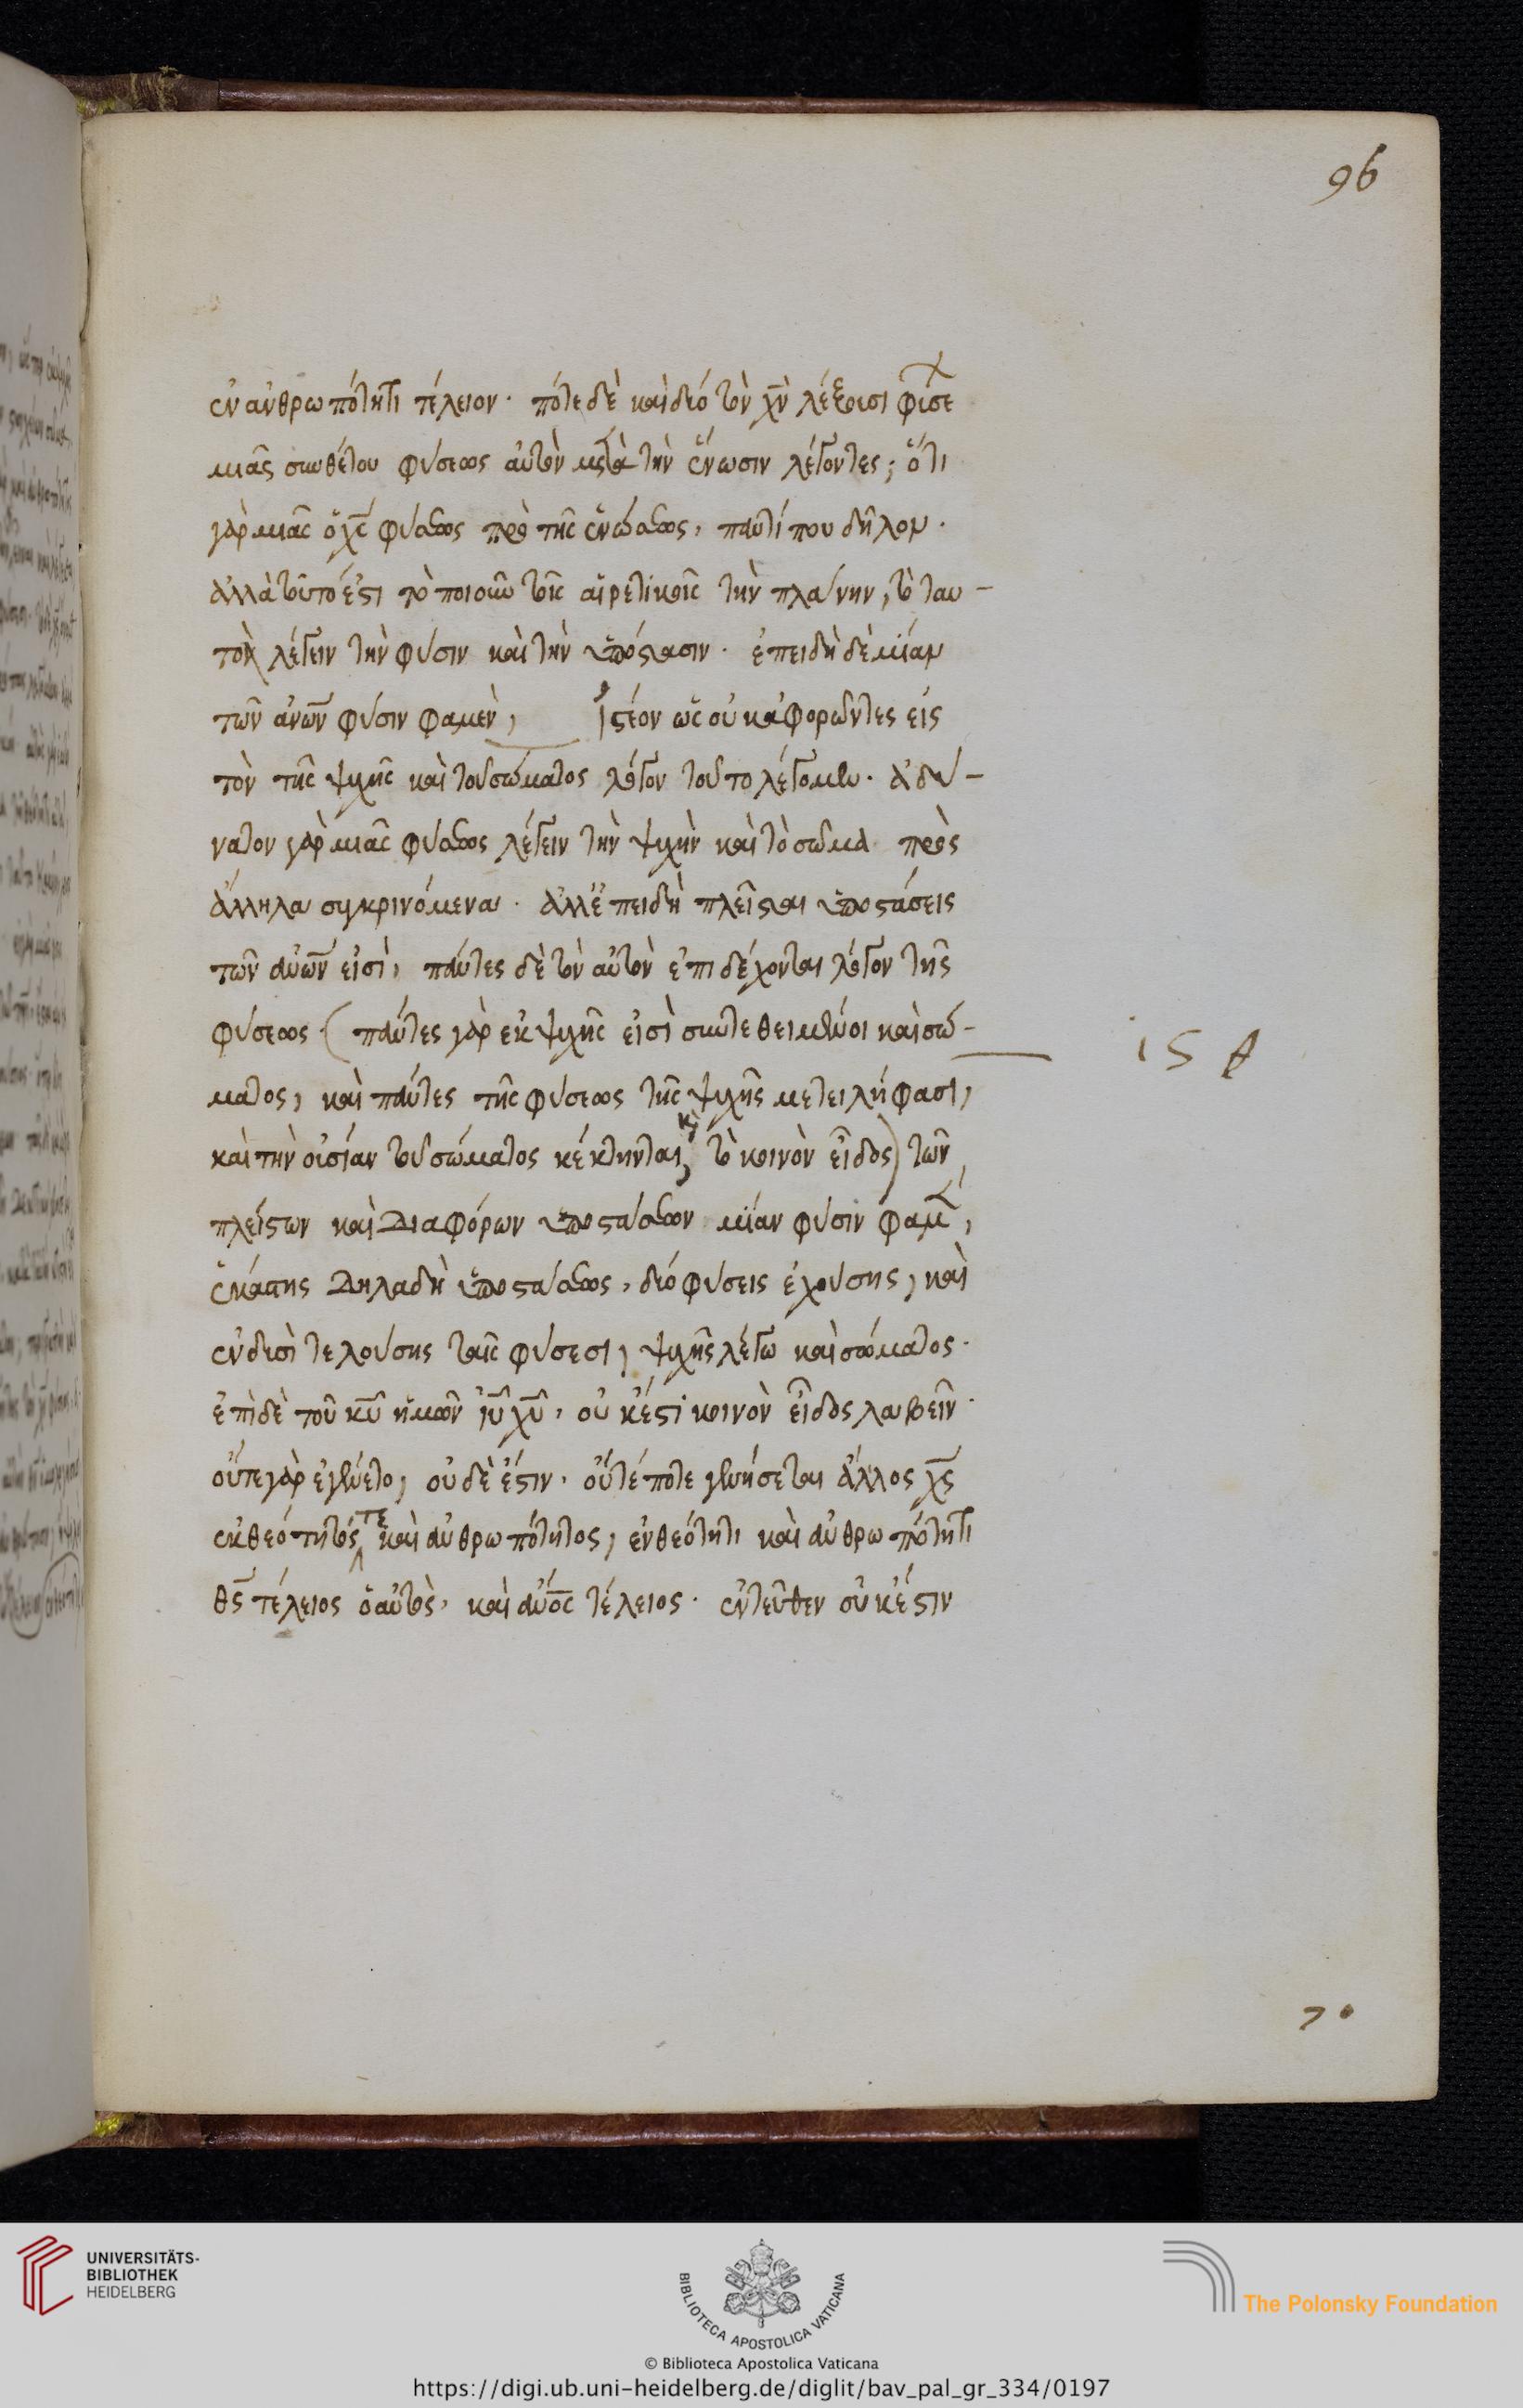 96
ἐν ἀνθρωπότητι τέλειον· πότε δὲ καὶ δύο τὸν χν λέξοισι φύσε
μιᾶς συνθέτου φύσεως αὐτὸν μετὰ τὴν ἕνωσιν λέγοντες; ὅτι
γὰρ μιᾶς ὁ χς φύσεως πρὸ τῆς ἑνώσεως, παντί που δῆλον.
ἀλλὰ τοῦτό ἐστι τὸ ποιοῦν τοῖς αἱρετικοῖς τὴν πλάνην, τὸ ταυ-
τὸν λέγειν τὴν φύσιν καὶ τὴν ὑπόστασιν. ἐπειδὴ δὲ μίαν
τῶν ἀνων φύσιν φαμὲν, Ἰστέον ὡς οὐκ ἀφορῶντες εἰς
τὸν τῆς ψυχῆς καὶ τοῦ σώματος λόγον τοῦτο λέγομεν. ἀδύ-
νατον γὰρ μιᾶς φύσεως λέγειν τὴν ψυχὴν καὶ τὸ σῶμα πρὸς
ἄλληλα συγκρινόμενα. ἀλλ' ἐπειδὴ πλεῖσται ὑποστάσεις
τῶν ἀνων εἰσὶ, πάντες δὲ τὸν αὐτὸν ἐπιδέχονται λόγον τῆς
φύσεως (πάντες γὰρ ἐκ ψυχῆς εἰσὶ συντεθειμένοι καὶ σώ-
ματος, καὶ πάντες τῆς φύσεως τῆς ψυχῆς μετειλήφασι,
καὶ τὴν οὐσίαν τοῦ σώματος κέκτηνται, κ τὸ κοινὸν εἶδος) τῶν
πλείστων καὶ διαφόρων ὑποστάσεων μίαν φύσιν φαμ,
ἑκάστης δηλαδὴ ὑποστάσεως, δύο φύσεις ἐχούσης, καὶ
ἐν δυσὶ τελούσης ταῖς φύσεσι, ψυχῆς λέγω καὶ σώματος.
ἐπὶ δὲ τοῦ κυ ἡμῶν ιυ χυ, οὐκ ἔστι κοινὸν εἶδος λαβεῖν·
οὔτε γὰρ ἐγένετο, οὐδὲ ἔστιν, οὔτέ ποτε γενήσεται ἄλλος χς
ἐκ θεότητός τε καὶ ἀνθρωπότητος, ἐν θεότητι καὶ ἀνθρωπότητι
θς τέλειος ὁ αὐτὸς, καὶ ἀνος τέλειος. ἐντεῦθεν οὐκ ἔστιν
70
UNIVERSITÄTS-
BIBLIOTHEK
HEIDELBERG
BIBLIOTECA APOSTOLICA VATICANA
The Polonsky Foundation
© Biblioteca Apostolica Vaticana
https://digi.ub.uni-heidelberg.de/diglit/bav_pal_gr_334/0197